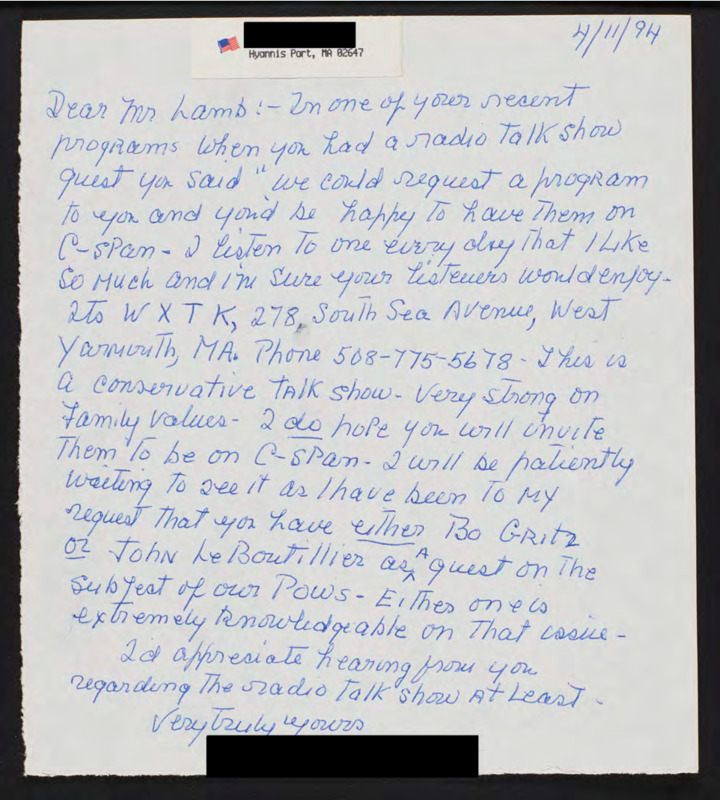 Hyannis Port, MA 02647
4/11/94
Dear Mr Lamb:- In one of your recent
programs when you had a radio Talk show
guest you said "we could request a program
to you and you'd be happy to have them on
C-SPan- I listen to one every day that I like
so much and I'm sure your listeners would enjoy-
Its W X T K, 278, South Sea Avenue, West
Yarmouth, MA. Phone 508-775-5678- This is
a conservative Talk show- Very strong on
Family values- I do hope you will invite
Them To be on C-SPan- I will be patiently
waiting to see it as I have been to my
request that you have either Bo Gritz
or John LeBoutillier as A guest on the
subject of our POWs- Either one is
extremely knowledgeable on That issue-
I'd appreciate hearing from you
regarding the radio Talk show at Least-
Very truly yours